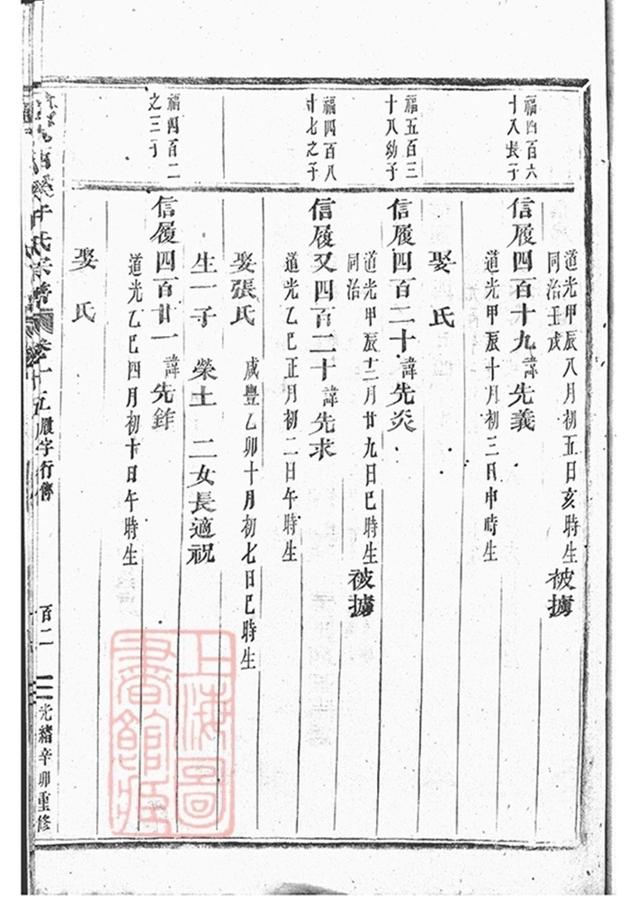 道光甲辰八月初五日亥時生
同治壬戌 被擄
福四百六
十八長子
信履四百十九 諱先義
道光甲辰十月初三日申時生
娶 氏
福五百三
十八幼子
信履四百二十 諱先炎
道光甲辰十二月廿九日巳時生
同治 被擄
福四百八
十七之子
信履又四百二十 諱先求
道光乙巳正月初二日午時生
娶張氏 咸豐乙卯十月初七日巳時生
生一子 榮土 二女長適祝
福四百二
之三子
信履四百廿一 諱先
道光乙巳四月初十日午時生
娶 氏
溪 氏宗譜 卷十五 履字行傳 百二 光緒辛卯重修
上海圖
書館藏